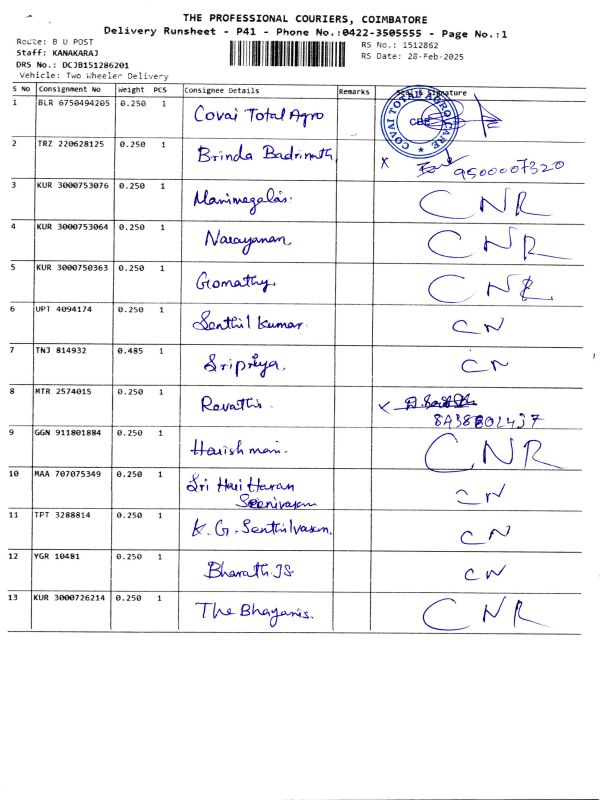 THE PROFESSIONAL COURIERS, COIMBATORE
Delivery Runsheet - P41 - Phone No.:0422-3505555 - Page No.:1
Route: B U POST RS No.: 1512862
Staff: KANAKARAJ RS Date: 28-Feb-2025
DRS No.: DCJB151286201
Vehicle: Two Wheeler Delivery
S No Consignment No Weight PCS Consignee Details Remarks Signature
1 BLR 6750494205 0.250 1 Covai Total Agro COVAI TOTAL AGRO CARE CBE
2 TRZ 220628125 0.250 1 Brinda Badrinath X 9500007320
3 KUR 3000753076 0.250 1 Manimegalai. CNR
4 KUR 3000753064 0.250 1 Narayanan CNR
5 KUR 3000750363 0.250 1 Gomathy. CNR
6 UPT 4094174 0.250 1 Senthil Kumar. CN
7 TNJ 814932 0.485 1 Sripriya. CN
8 MTR 2574015 0.250 1 Revathi. X
9 GGN 911801884 0.250 1 Harish mani. CNR
10 MAA 707075349 0.250 1 Sri Hari Haran CN
Seenivasan
11 TPT 3288814 0.250 1 K. G. Senthilvasan. CN
12 YGR 10481 0.250 1 Bharath. JS. CN
13 KUR 3000726214 0.250 1 The Bhayanis. CNR